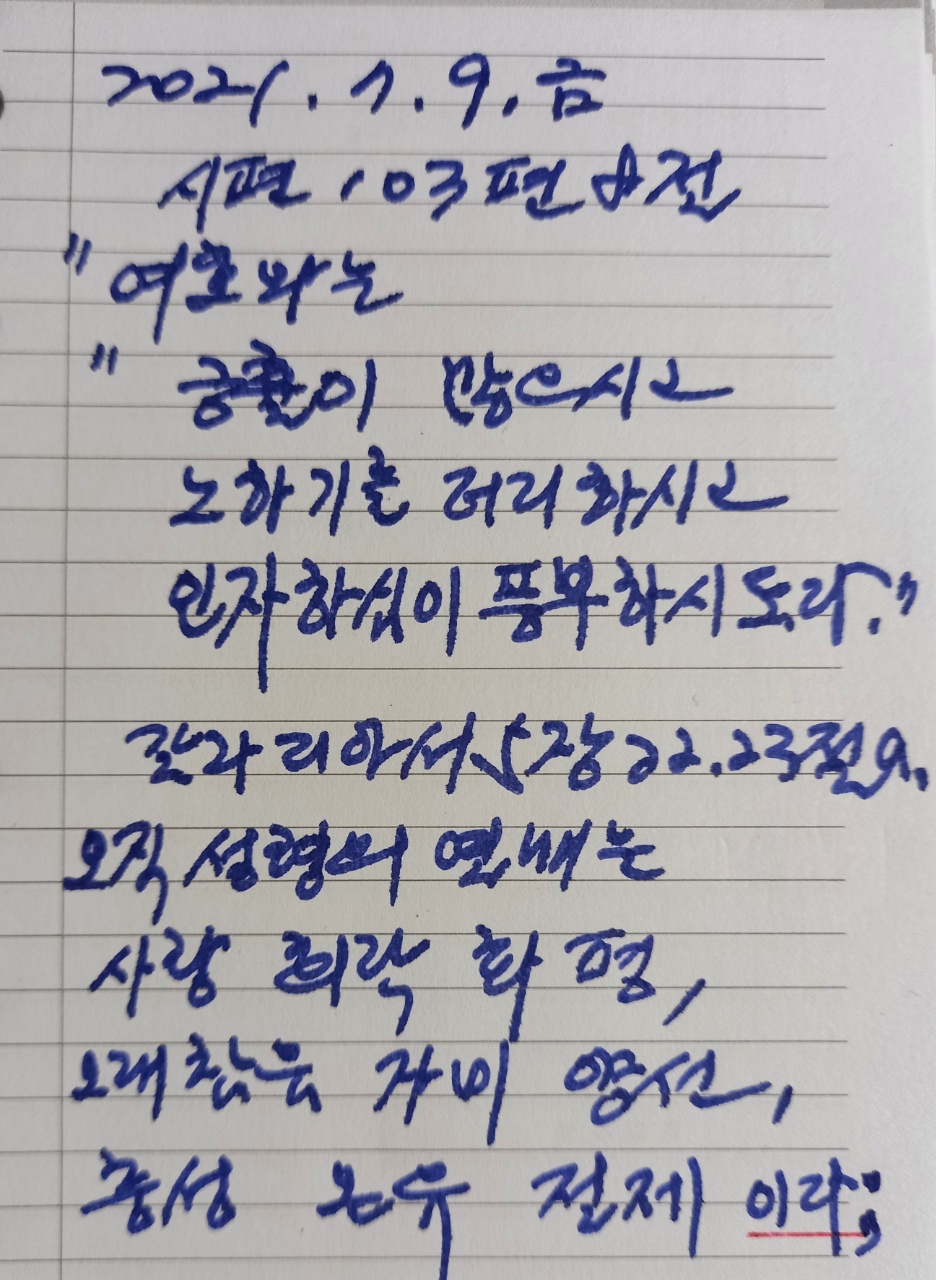 2021. 7. 9. 금
시편 103편 8절
" 여호와는
" 긍휼이 많으시고
노하기를 더디하시고
인자하심이 풍부하시도다."
갈라디아서 5장 22.23절
오직 성령의 열매는
사랑 희락 화평,
오래참음 자비 양선,
충성 온유 절제 이다;